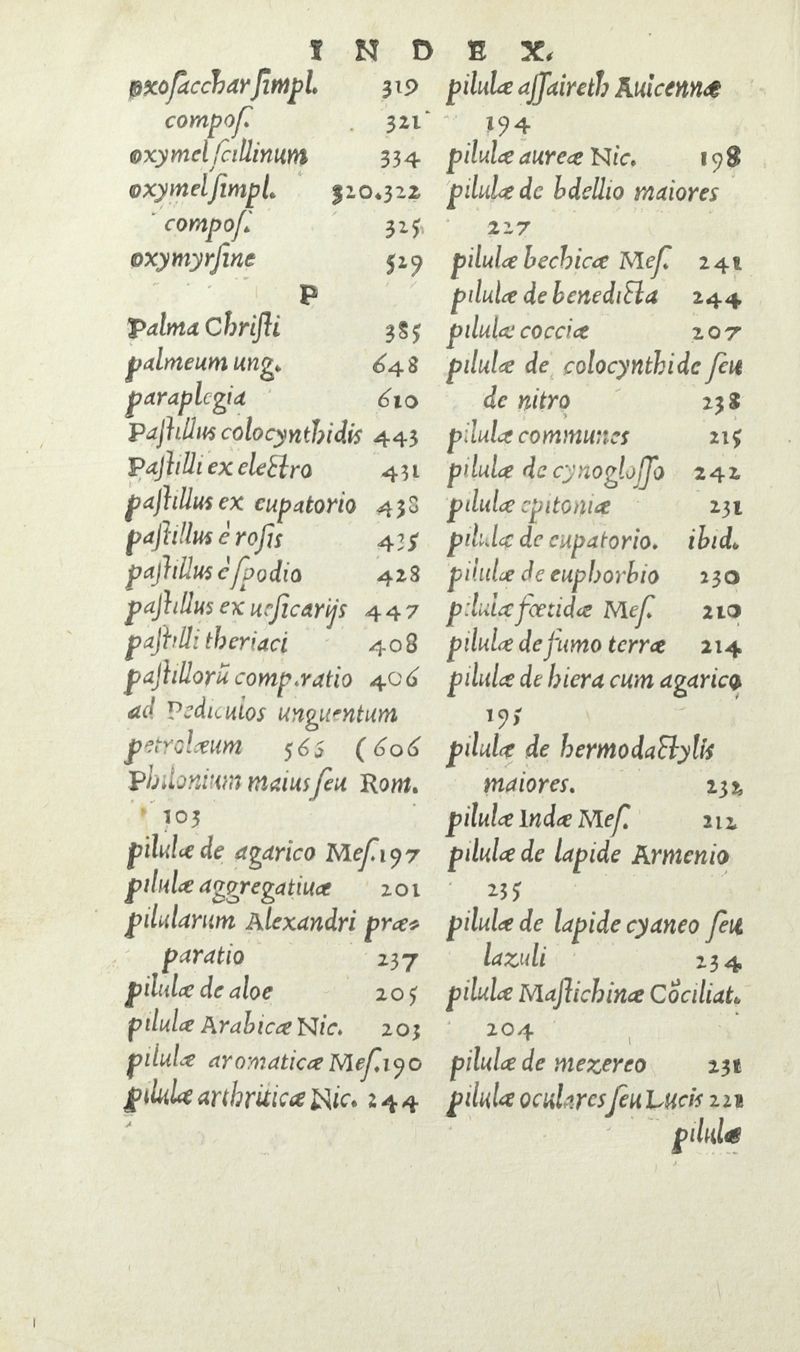 INDEX.
oxosacchar simpl. 319
compos. 321
oxymel scillinum 334
oxymel simpl. 320.322
compos. 325
oxymyrsine 529
P
Palma Christi 385
palmeum ung. 648
paraplegia 610
Pastillus colocynthidis 443
Pastilli ex electro 431
pastillus ex eupatorio 438
pastillus è rosis 435
pastillus è spodio 428
pastillus ex uesicarijs 447
pastilli theriaci 408
pastillorũ comp.ratio 406
ad Pediculos unguentum
petrolæum 566 (606
Philonium maius seu Rom.
103
pilulæ de agarico Mes. 197
pilulæ aggregatiuæ 201
pilularum Alexandri præ=
paratio 237
pilulæ de aloe 205
pilulæ Arabicæ Nic. 203
pilulæ aromaticæ Mes. 190
pilulæ arthriticæ Nic. 244
pilulæ assaireth Auicennæ
194
pilulæ aureæ Nic. 198
pilulæ de bdellio maiores
227
pilulæ bechicæ Mes. 241
pilulæ de benedicta 244
pilulæ cocciæ 207
pilulæ de colocynthide seu
de nitro 238
pilulæ communes 215
pilulæ de cynoglosso 242
pilulæ epitoniæ 231
pilulæ de eupatorio. ibid.
pilulæ de euphorbio 230
pilulæ fœtidæ Mes. 210
pilulæ de fumo terræ 214
pilulæ de hiera cum agarico
195
pilulæ de hermodactylis
maiores. 232
pilulæ Indæ Mes. 212
pilulæ de lapide Armenio
235
pilulæ de lapide cyaneo seu
lazuli 234
pilulæ Mastichinæ Cōciliat.
204
pilulæ de mezereo 231
pilulæ oculares seu Lucis 221
pilulæ